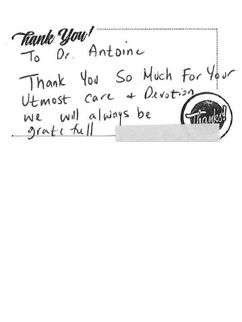 Thank You!
To Dr. Antoine
Thank You So Much For Your
Utmost care + Devotion
we will always be
gratefull
Thanks!